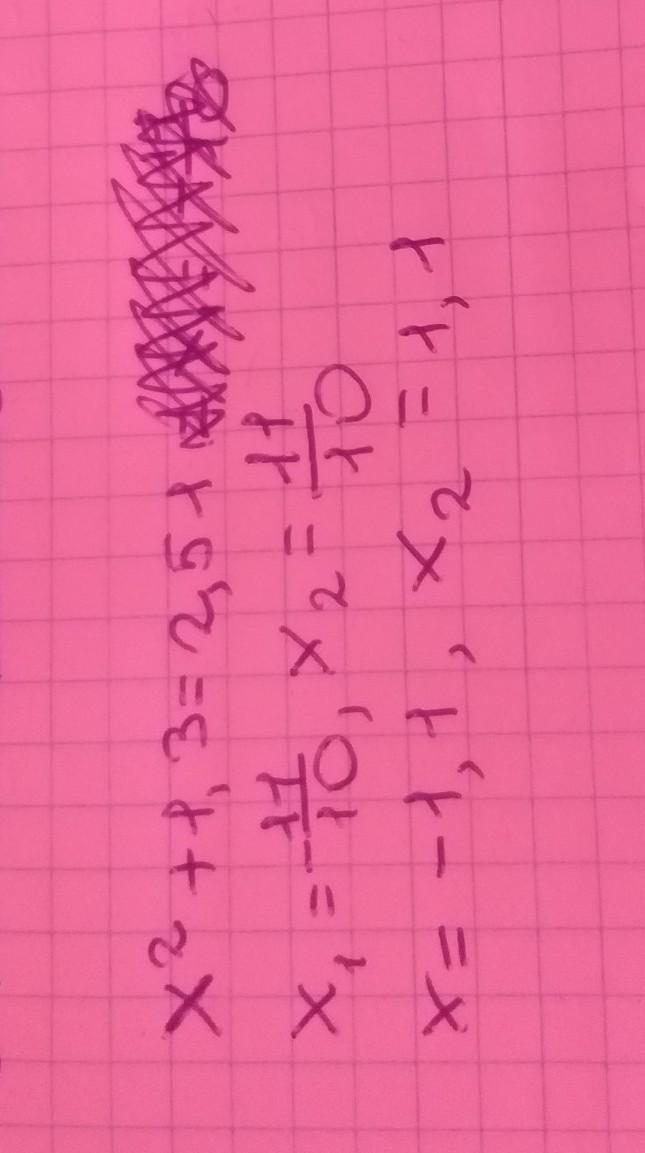 x² + 1,3 = 2,51
x₁ = -11/10, x₂ = 11/10
x = -1,1, x₂ = 1,1